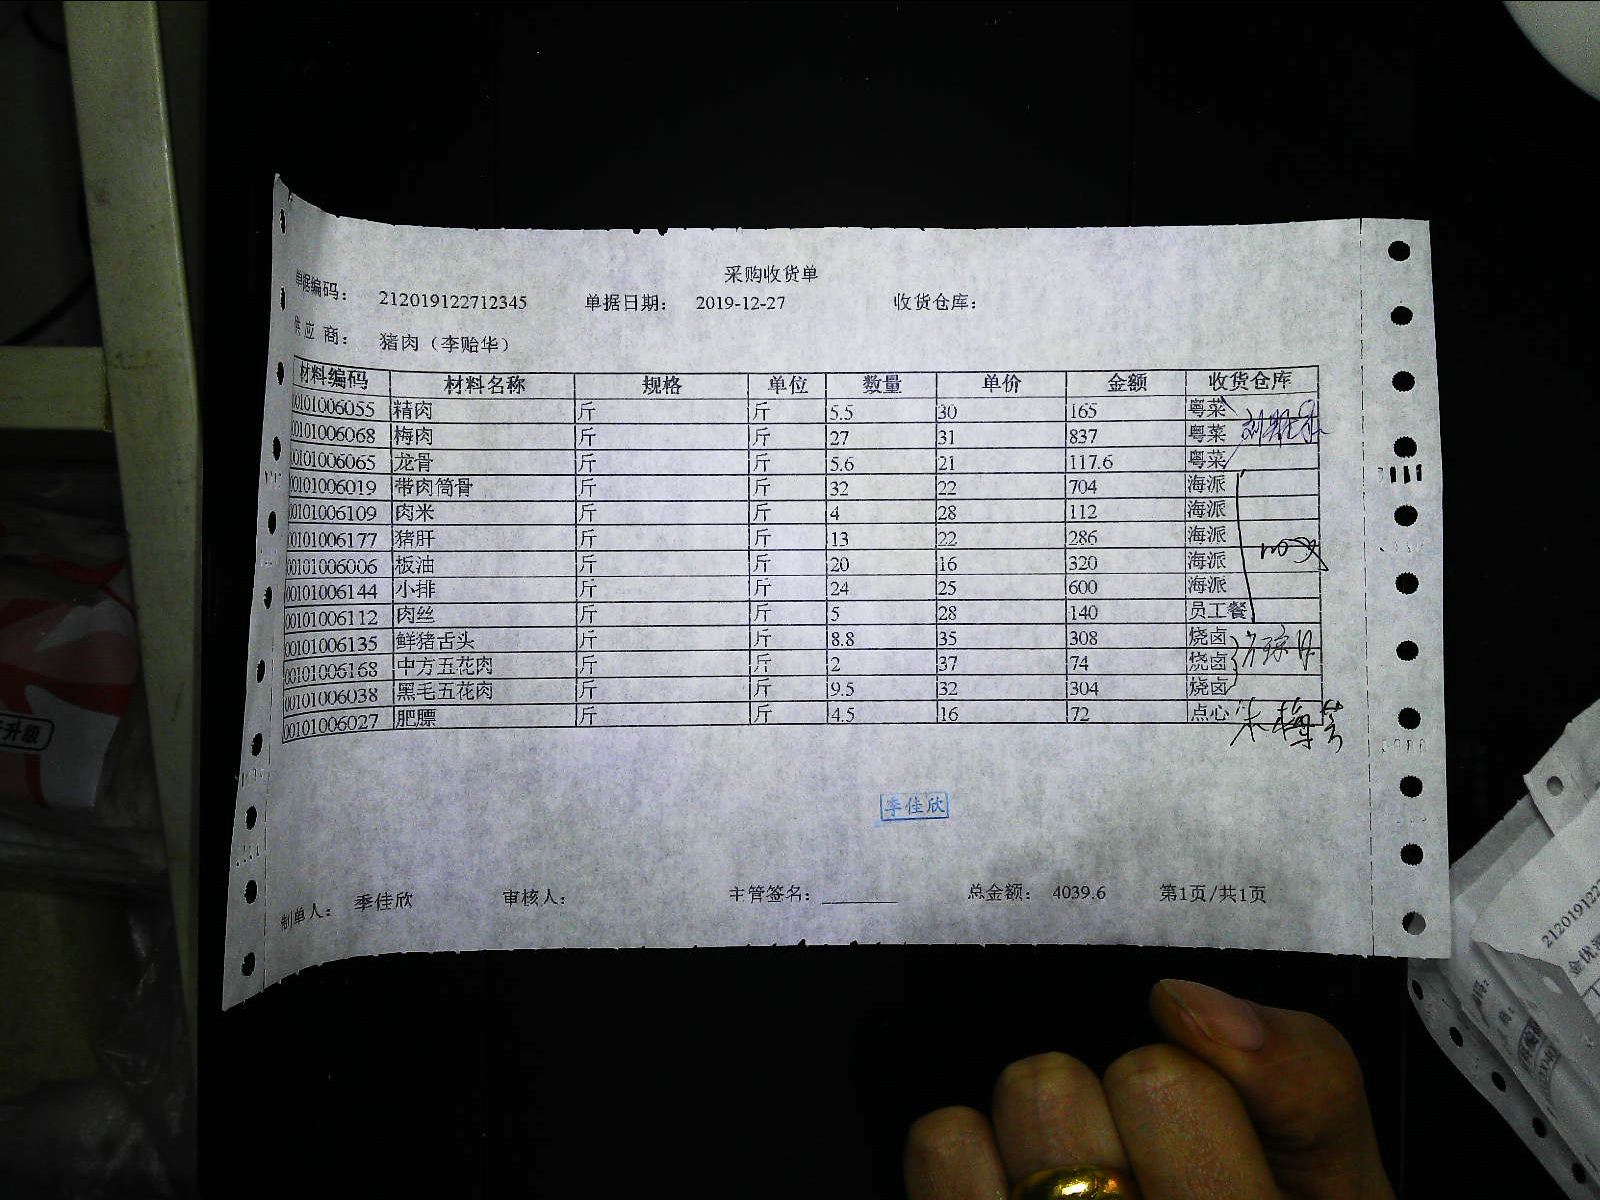 采购收货单
单据编码： 212019122712345 单据日期： 2019-12-27 收货仓库：
供应商： 猪肉（李贻华）
材料编码 材料名称 规格 单位 数量 单价 金额 收货仓库
00101006055 精肉 斤 斤 5.5 30 165 粤菜
00101006068 梅肉 斤 斤 27 31 837 粤菜
00101006065 龙骨 斤 斤 5.6 21 117.6 粤菜
00101006019 带肉筒骨 斤 斤 32 22 704 海派
00101006109 肉米 斤 斤 4 28 112 海派
00101006177 猪肝 斤 斤 13 22 286 海派
00101006006 板油 斤 斤 20 16 320 海派
00101006144 小排 斤 斤 24 25 600 海派
00101006112 肉丝 斤 斤 5 28 140 员工餐
00101006135 鲜猪舌头 斤 斤 8.8 35 308 烧卤
00101006168 中方五花肉 斤 斤 2 37 74 烧卤
00101006038 黑毛五花肉 斤 斤 9.5 32 304 烧卤
00101006027 肥膘 斤 斤 4.5 16 72 点心
季佳欣
制单人： 季佳欣 审核人： 主管签名：________ 总金额： 4039.6 第1页/共1页
升級